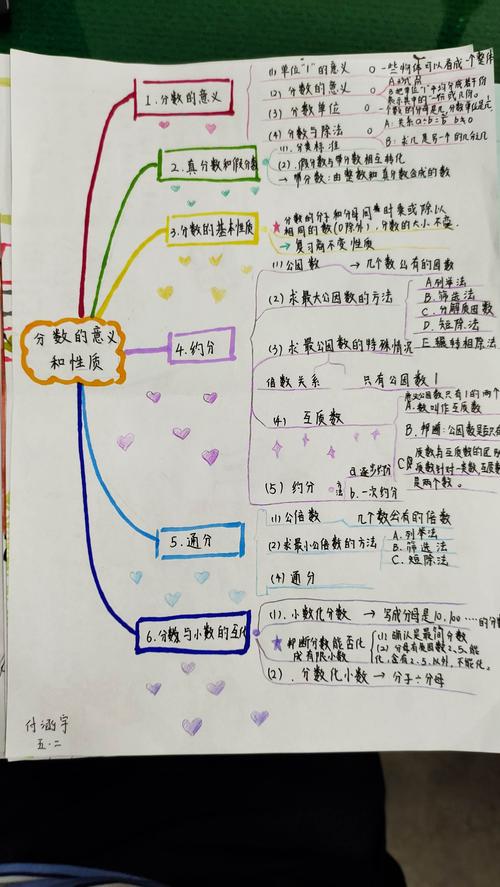 分数的意义
和性质
1.分数的意义
(1)单位"1"的意义 一些物体可以看成一个整体
(2).分数的意义
B.把单位"1"平均分成若干份
表示其中的一份或几份。
(3)分数单位
(4)分数与除法
A.关系 a÷b=a/b b≠0
B:求几是另一个的几分之几
2.真分数和假分数
(1).分类标准
(2).假分数与带分数相互转化
→带分数:由整数和真分数合成的数
3.分数的基本性质
★分数的分子和分母同时乘或除以
相同的数(0除外),分数的大小不变.
→复习商不变性质
4.约分
(1)公因数 → 几个数公有的因数
(2)求最大公因数的方法
A.列举法
B.筛选法
C.分解质因数
D.短除法
E.辗转相除法
(3)求最公因数的特殊情况
倍数关系 只有公因数1
(4) 互质数
公因数只有1的两个
A.数叫作互质数
B.判断:公因数是否只有
质数与互质数的区别
质数针对一类数,互质数
是两个数。
(5)约分 方法
a.逐步约分
b.一次约分
5.通分
(1)公倍数 几个数公有的倍数
(2)求最小公倍数的方法
A.列举法
B.筛选法
C.短除法
(4)通分
6.分数与小数的互化
(1).小数化分数 → 写成分母是10,100……的分
★判断分数能否化
成有限小数
(1)确认是最简分数
(2)分母有质因数2.5.能
化,含有2.5.以外,不能化。
(2).分数化小数 → 分子÷分母
付涵宇
五.二